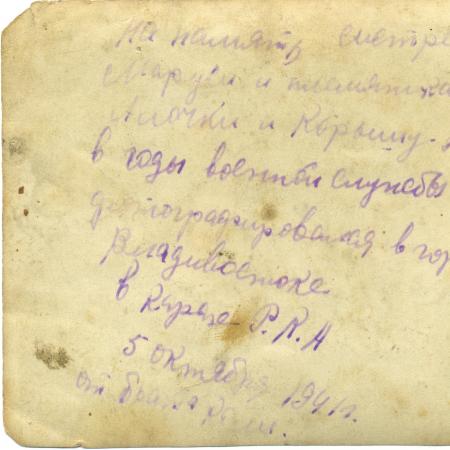 на память сестре
Маруси и племяшка
Алочки и Юрышу.
в годы военной службы
фотографировался в гор
Владивостоке
в Караже Р.К.А
5 октября 1941г.
от брата Коли.